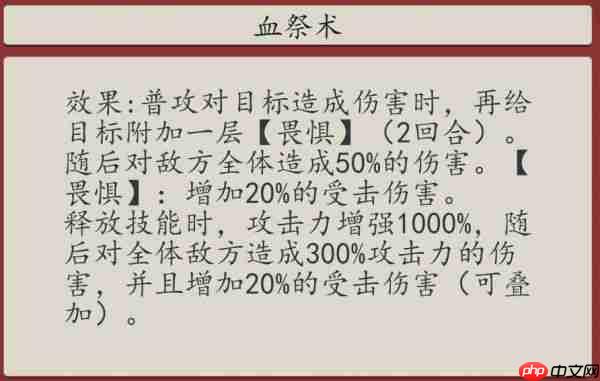 血祭术
效果:普攻对目标造成伤害时，再给
目标附加一层【畏惧】（2回合）。
随后对敌方全体造成50%的伤害。【
畏惧】：增加20%的受击伤害。
释放技能时，攻击力增强1000%，随
后对全体敌方造成300%攻击力的伤
害，并且增加20%的受击伤害（可叠
加）。
php中文网